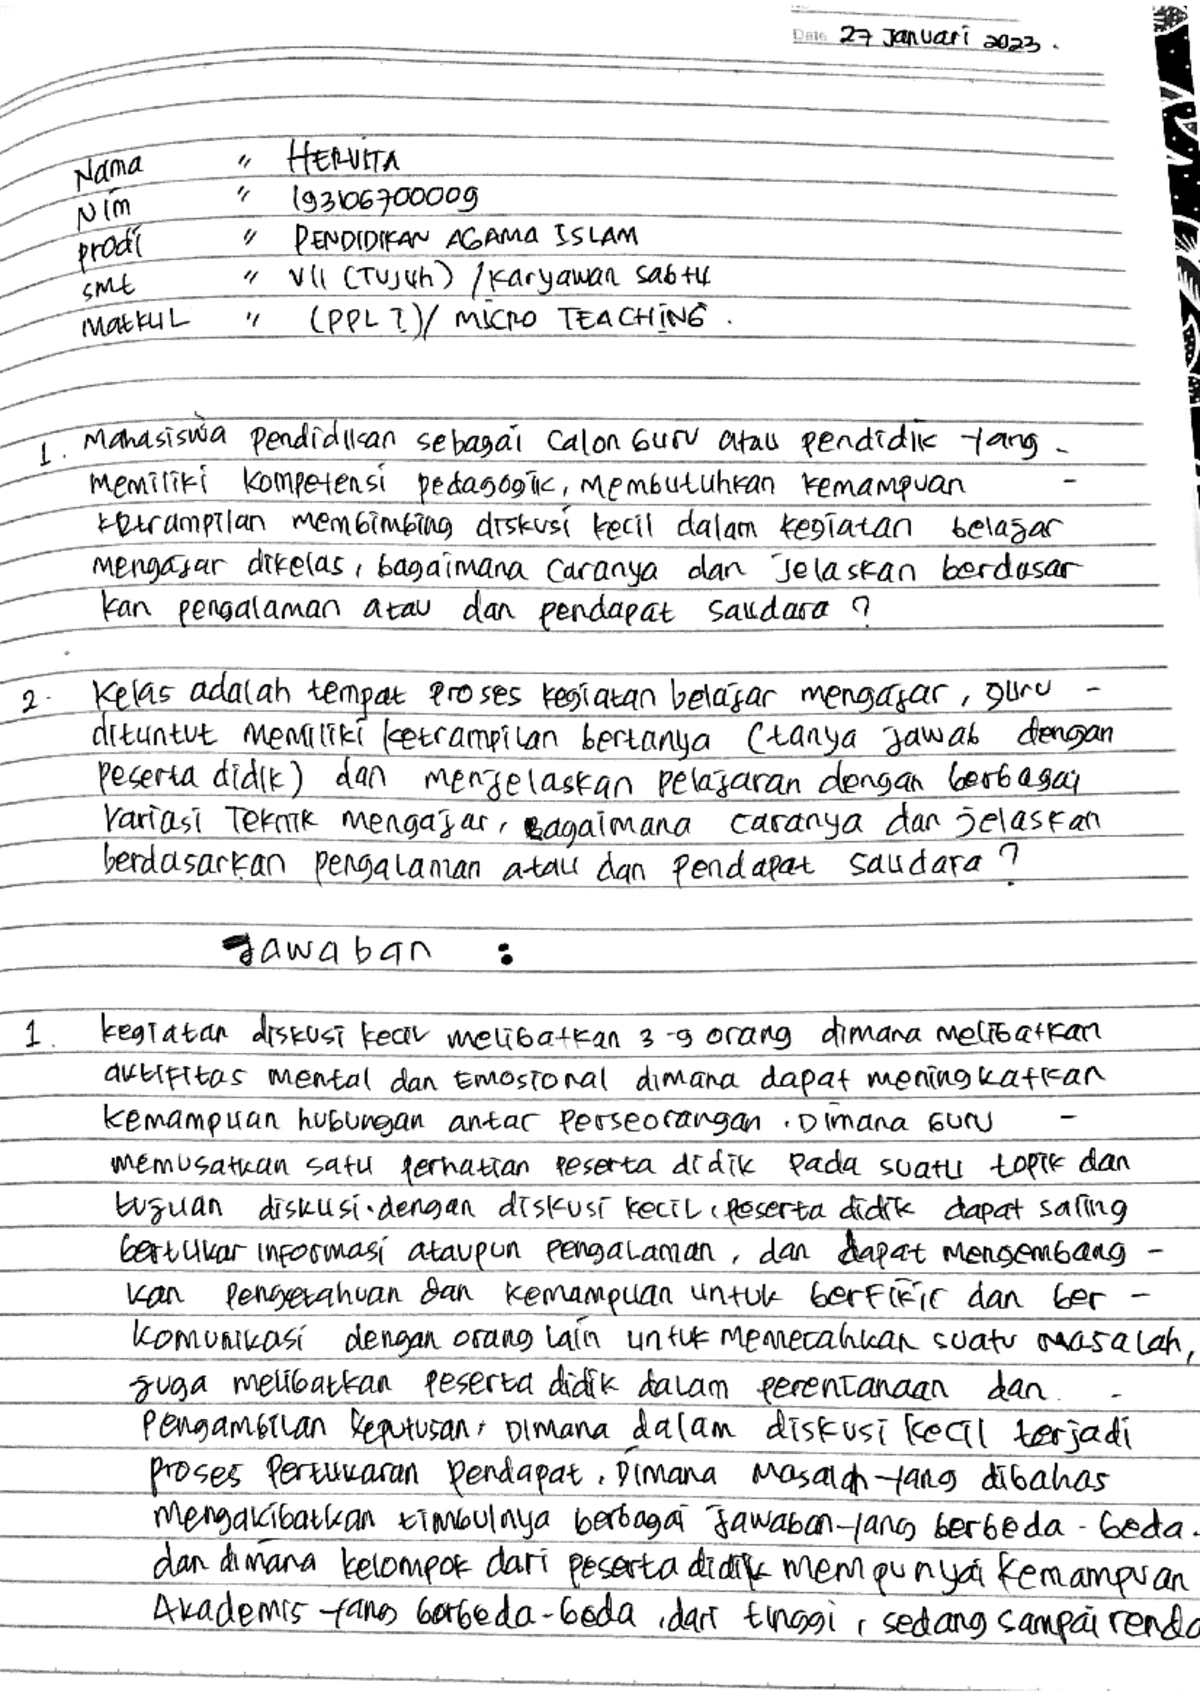 Date 27 Januari 2023.
Nama " HERVITA
Nim " 193106700009
prodi " PENDIDIKAN AGAMA ISLAM
smt " VII (TUJUH) / Karyawan Sabtu
Matkul " (PPL I) / MICRO TEACHING.
1. Mahasiswa pendidikan sebagai Calon Guru atau pendidik yang -
memiliki kompetensi pedagogik, membutuhkan kemampuan -
ketrampilan membimbing diskusi kecil dalam kegiatan belajar
mengajar dikelas, bagaimana caranya dan jelaskan berdasar
kan pengalaman atau dan pendapat saudara ?
2. Kelas adalah tempat proses kegiatan belajar mengajar, guru -
dituntut memiliki ketrampilan bertanya (tanya jawab dengan
peserta didik) dan menjelaskan pelajaran dengan berbagai
variasi Teknik mengajar, Bagaimana caranya dan jelaskan
berdasarkan pengalaman atau dan pendapat saudara ?
Jawaban :
1. kegiatan diskusi kecil melibatkan 3-9 orang dimana melibatkan
aktifitas mental dan Emosional dimana dapat meningkatkan
kemampuan hubungan antar perseorangan. Dimana Guru -
memusatkan satu perhatian peserta didik pada suatu topik dan
tujuan diskusi. dengan diskusi kecil, peserta didik dapat saling
bertukar informasi ataupun pengalaman, dan dapat mengembang -
kan pengetahuan dan kemampuan untuk berfikir dan ber -
komunikasi dengan orang lain untuk memecahkan suatu masalah,
juga melibatkan peserta didik dalam perencanaan dan -
pengambilan keputusan, Dimana dalam diskusi kecil terjadi
proses pertukaran pendapat. Dimana masalah yang dibahas
mengakibatkan timbulnya berbagai jawaban yang berbeda-beda.
dan dimana kelompok dari peserta didik mempunyai kemampuan
Akademis yang berbeda-beda, dari tinggi, sedang sampai renda